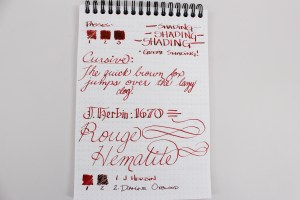 PASSES:
1 2 3
~ SHADING ~
~ SHADING ~
~ SHADING ~
Cursive:
The quick brown fox
jumps over the lazy
dog!
J. Herbin: 1670
Rouge
Hematite
1 2
1. J HERBIN
2. DIAMINE OXBLOOD